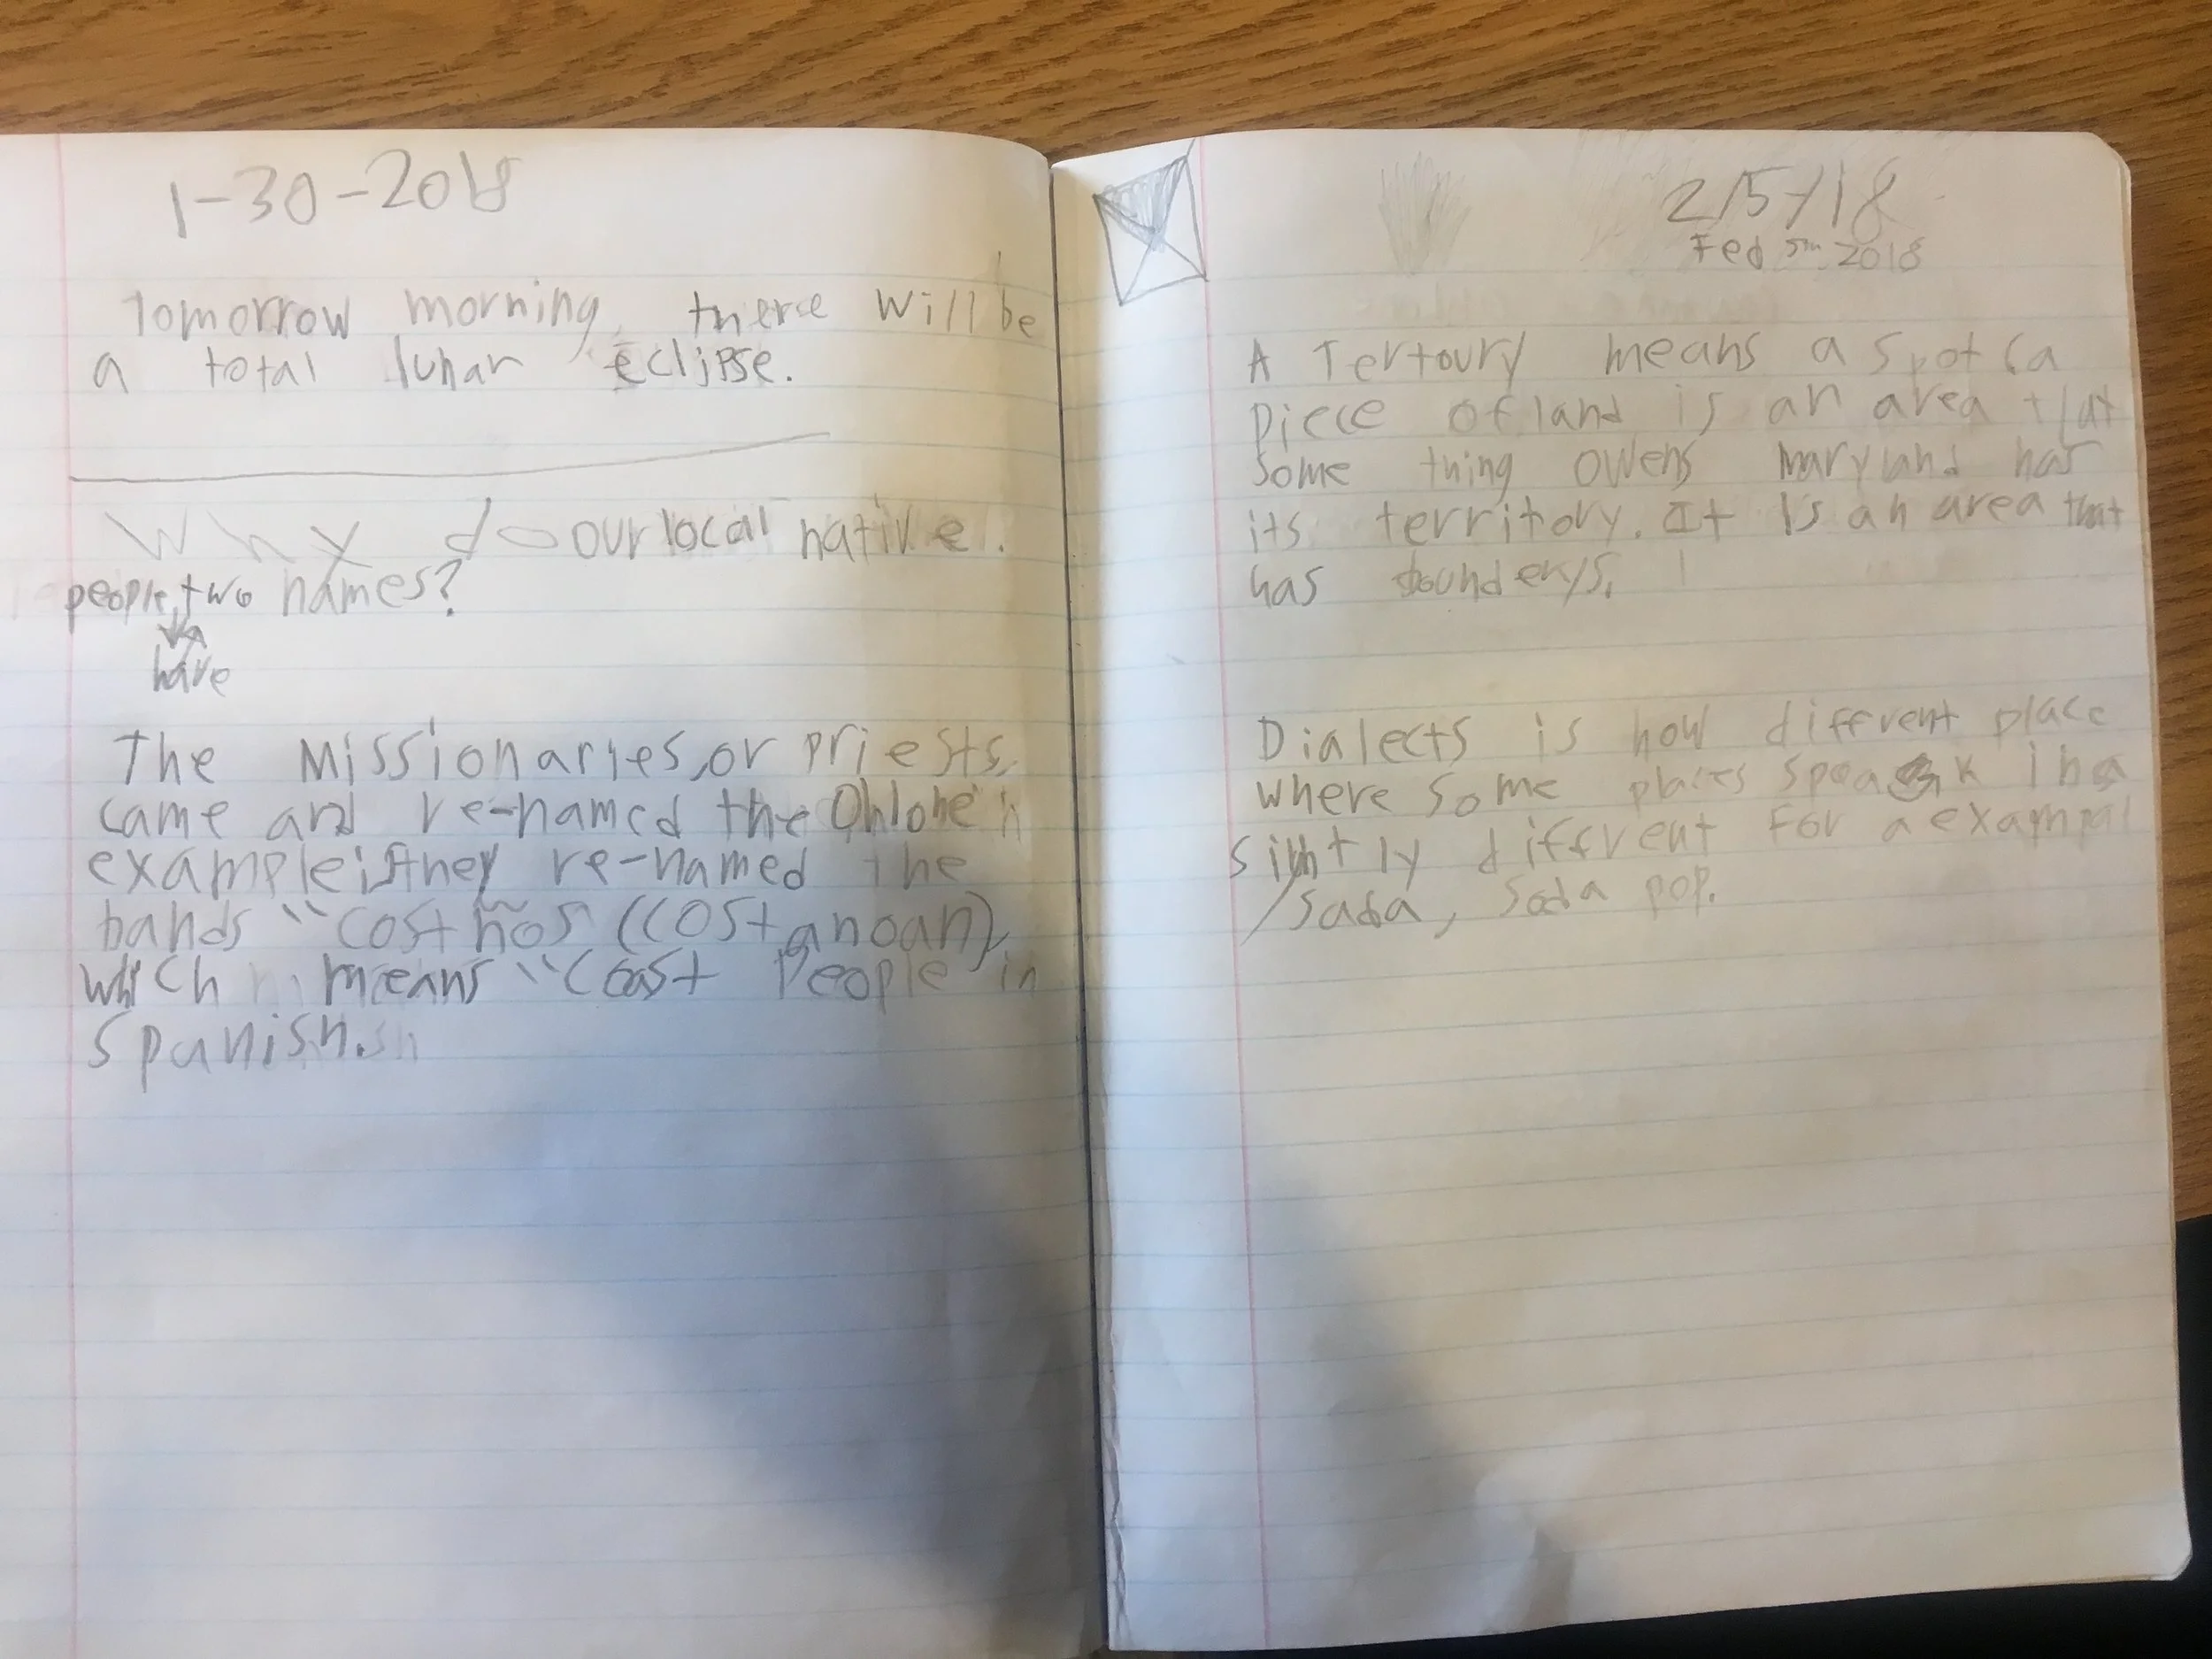 1-30-2018
Tomorrow morning, there will be
a total lunar eclipse.
Why do our local native
people, two names?
have
The Missionaries, or priests,
came and re-named the Ohlone
example: they re-named the
bands "Costños (Costanoan),
which means "Coast People in
Spanish.
2/5/18
Fed 5th 2018
A Tertoury means a spot (a
piece of land is an area that
some thing owens maryland has
its territory. It is an area that
has bounderys.
Dialects is how different place
where some places speak in a
sightly diffrent for a exampal
sada, soda pop.